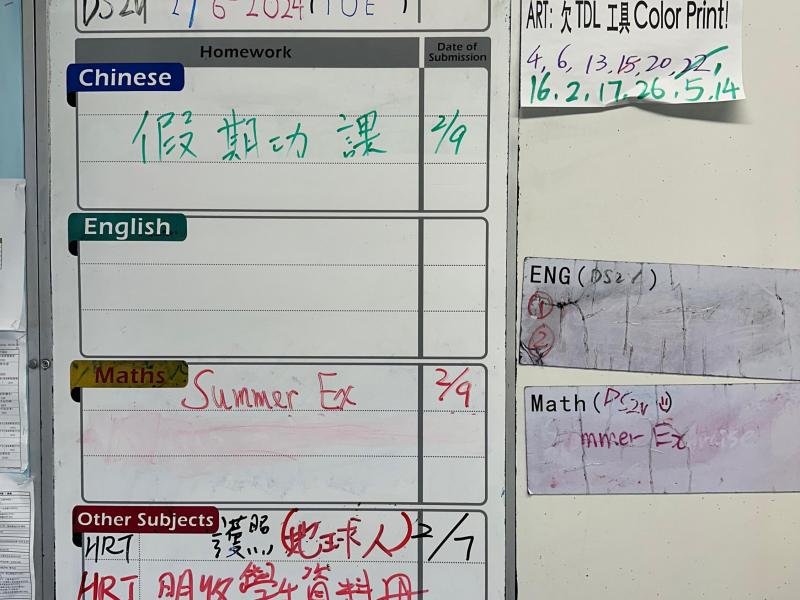 2/6-2024 TUE
Homework
Date of Submission
Chinese
假期功課 2/9
English
Maths
Summer Ex 2/9
Other Subjects
HRT 護照(地球人) 2/7
HRT 明收學生資料冊
ART: 欠 TDL 工具 Color Print!
4, 6, 13, 15, 20, 22,
16, 2, 17, 26, 5, 14
ENG (DS2)
①
②
Math (DS2
mmer Ex